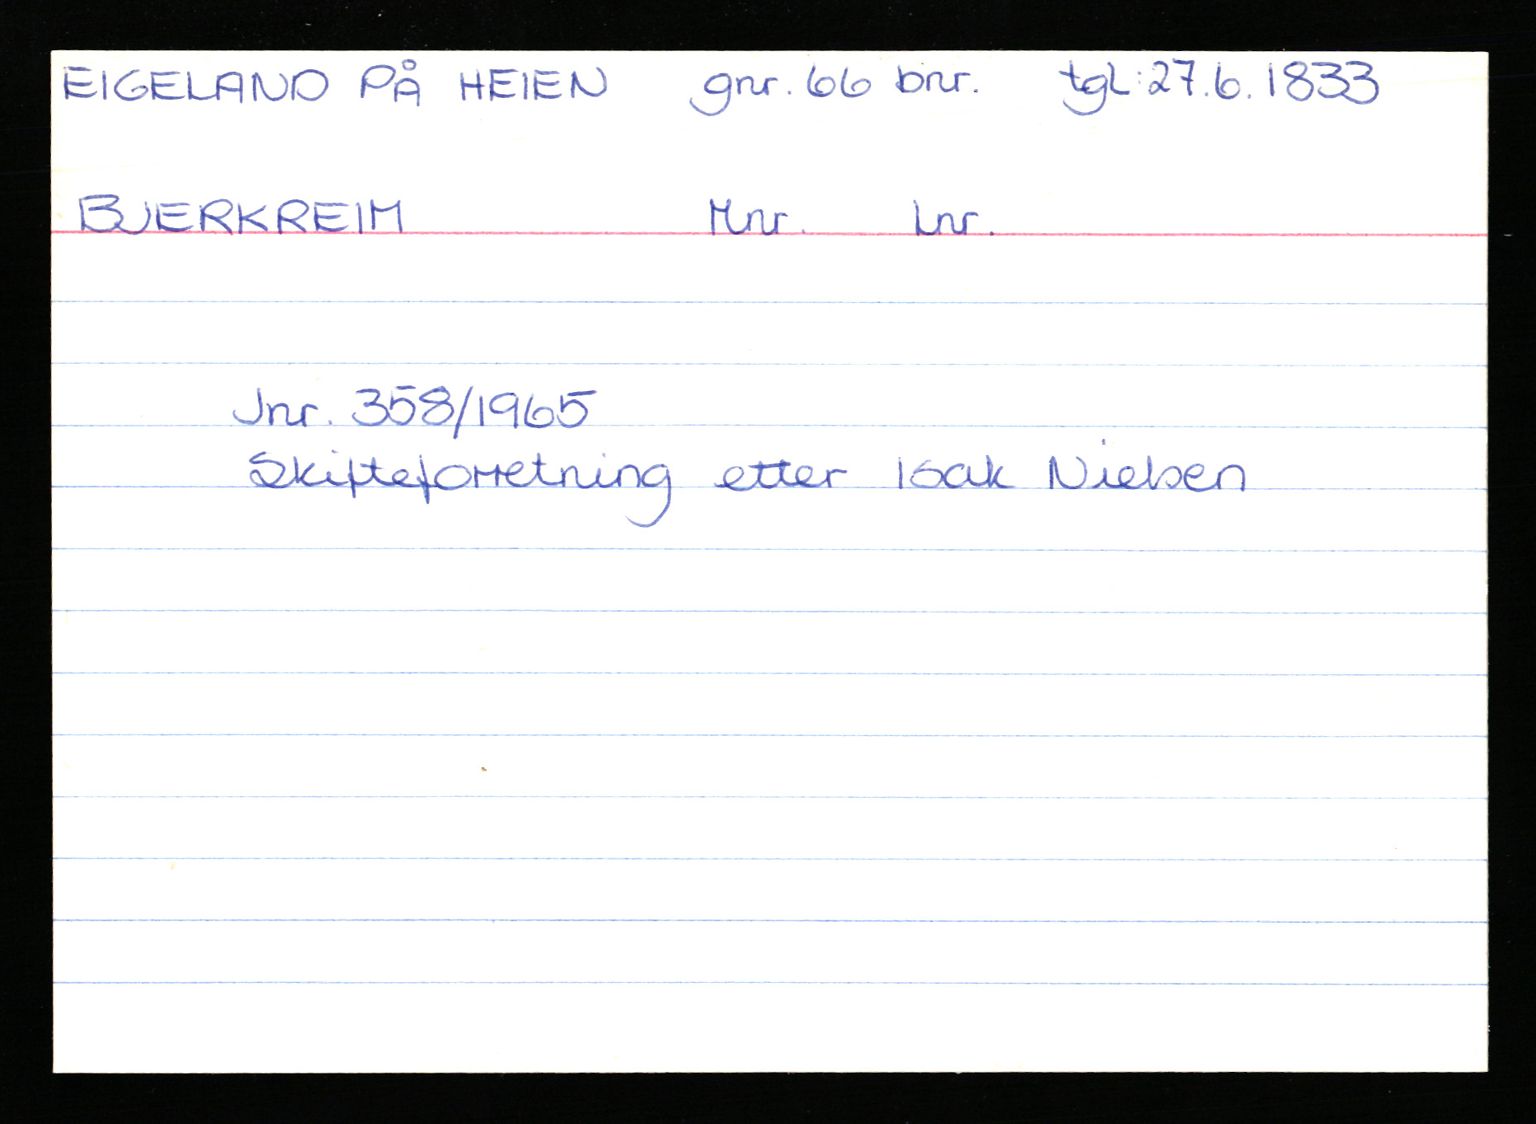 EIGELAND PÅ HEIEN gnr. 66 bnr. tgl: 27.6. 1833
BJERKREIM Mnr. Lnr.
Jnr. 358/1965
Skifteforretning etter Isak Nielsen